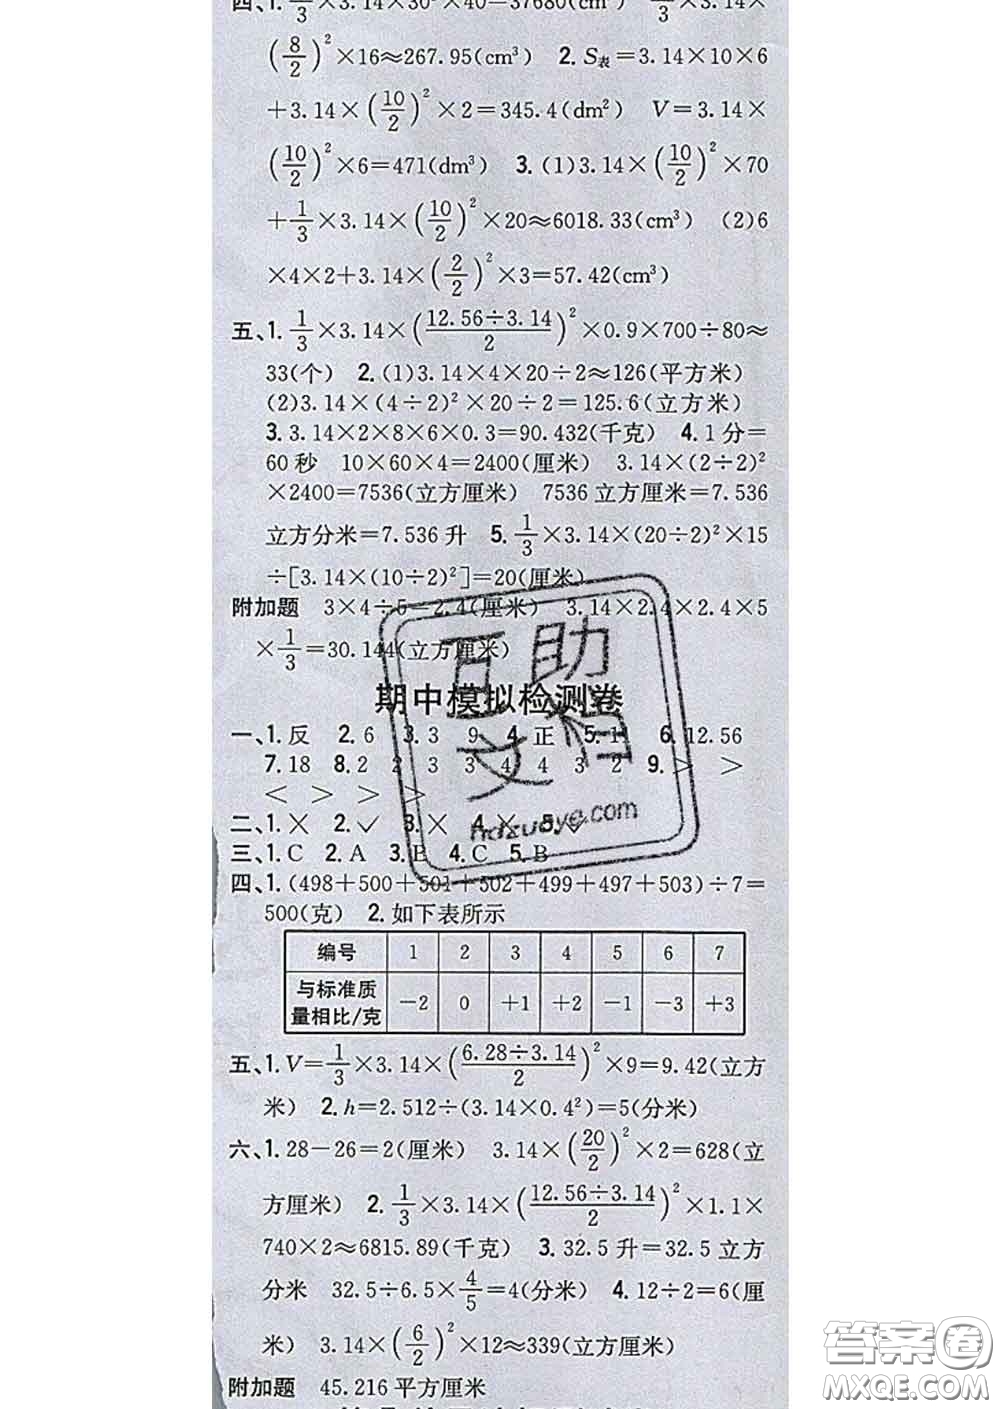 四、1. 1/3×3.14×30²×40=37680(cm³) 1/3×3.14×
(8/2)²×16≈267.95(cm³) 2. S表=3.14×10×6
+3.14×(10/2)²×2=345.4(dm²) V=3.14×
(10/2)²×6=471(dm³) 3. (1)3.14×(10/2)²×70
+1/3×3.14×(10/2)²×20≈6018.33(cm³) (2)6
×4×2+3.14×(2/2)²×3=57.42(cm³)
五、1. 1/3×3.14×(12.56÷3.14/2)²×0.9×700÷80≈
33(个) 2. (1)3.14×4×20÷2≈126(平方米)
(2)3.14×(4÷2)²×20÷2=125.6(立方米)
3. 3.14×2×8×6×0.3=90.432(千克) 4. 1分=
60秒 10×60×4=2400(厘米) 3.14×(2÷2)²
×2400=7536(立方厘米) 7536立方厘米=7.536
立方分米=7.536升 5. 1/3×3.14×(20÷2)²×15
÷[3.14×(10÷2)²]=20(厘米)
附加题 3×4÷5=2.4(厘米) 3.14×2.4×2.4×5
×1/3=30.144(立方厘米)
期中模拟检测卷
一、1. 反 2. 6 3. 3 9 4. 正 5. 11 6. 12.56
7. 18 8. 2 2 3 3 4 4 3 2 9. > >
< > > >
二、1. × 2. ✓ 3. × 4. × 5. ✓
三、1. C 2. A 3. B 4. C 5. B
四、1. (498+500+501+502+499+497+503)÷7=
500(克) 2. 如下表所示
编号 1 2 3 4 5 6 7
与标准质
量相比/克 −2 0 +1 +2 −1 −3 +3
五、1. V=1/3×3.14×(6.28÷3.14/2)²×9=9.42(立方
米) 2. h=2.512÷(3.14×0.4²)=5(分米)
六、1. 28−26=2(厘米) 3.14×(20/2)²×2=628(立
方厘米) 2. 1/3×3.14×(12.56÷3.14/2)²×1.1×
740×2≈6815.89(千克) 3. 32.5升=32.5立方
分米 32.5÷6.5×4/5=4(分米) 4. 12÷2=6(厘
米) 3.14×(6/2)²×12≈339(立方厘米)
附加题 45.216平方厘米
互助
文档
hdzuoye.com
答案圈
MXQE.COM